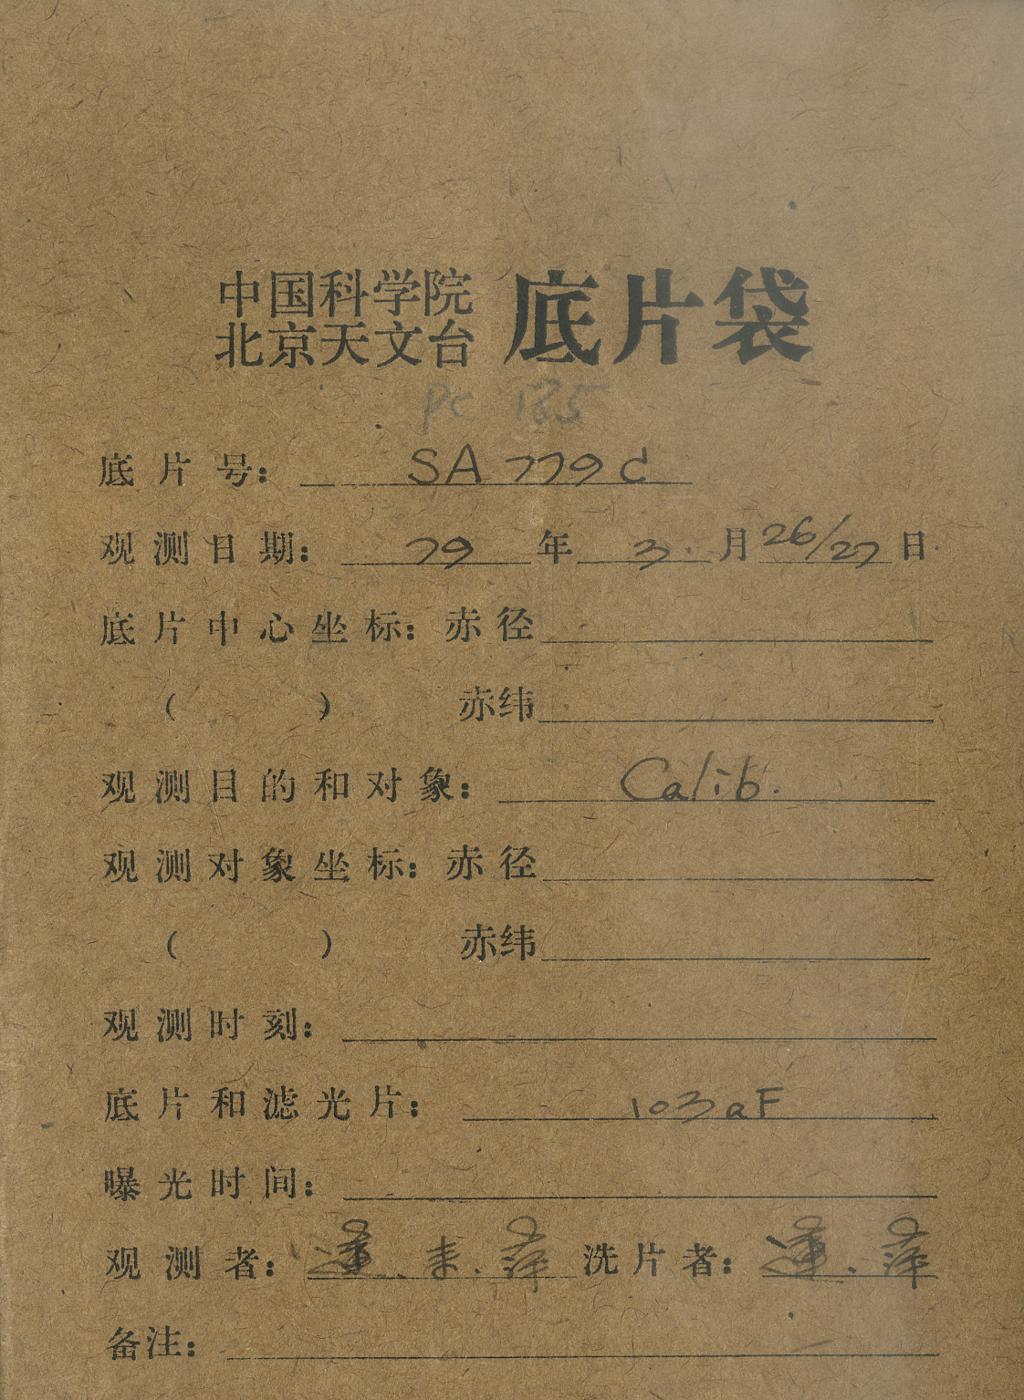 中国科学院
北京天文台
底片袋
PC 185
底片号: SA 779 d
观测日期: 79 年 3 月 26/27 日
底片中心坐标: 赤径
( ) 赤纬
观测目的和对象: Calib.
观测对象坐标: 赤径
( ) 赤纬
观测时刻:
底片和滤光片: 103aF
曝光时间:
观测者: 萍 洗片者: 萍
备注: